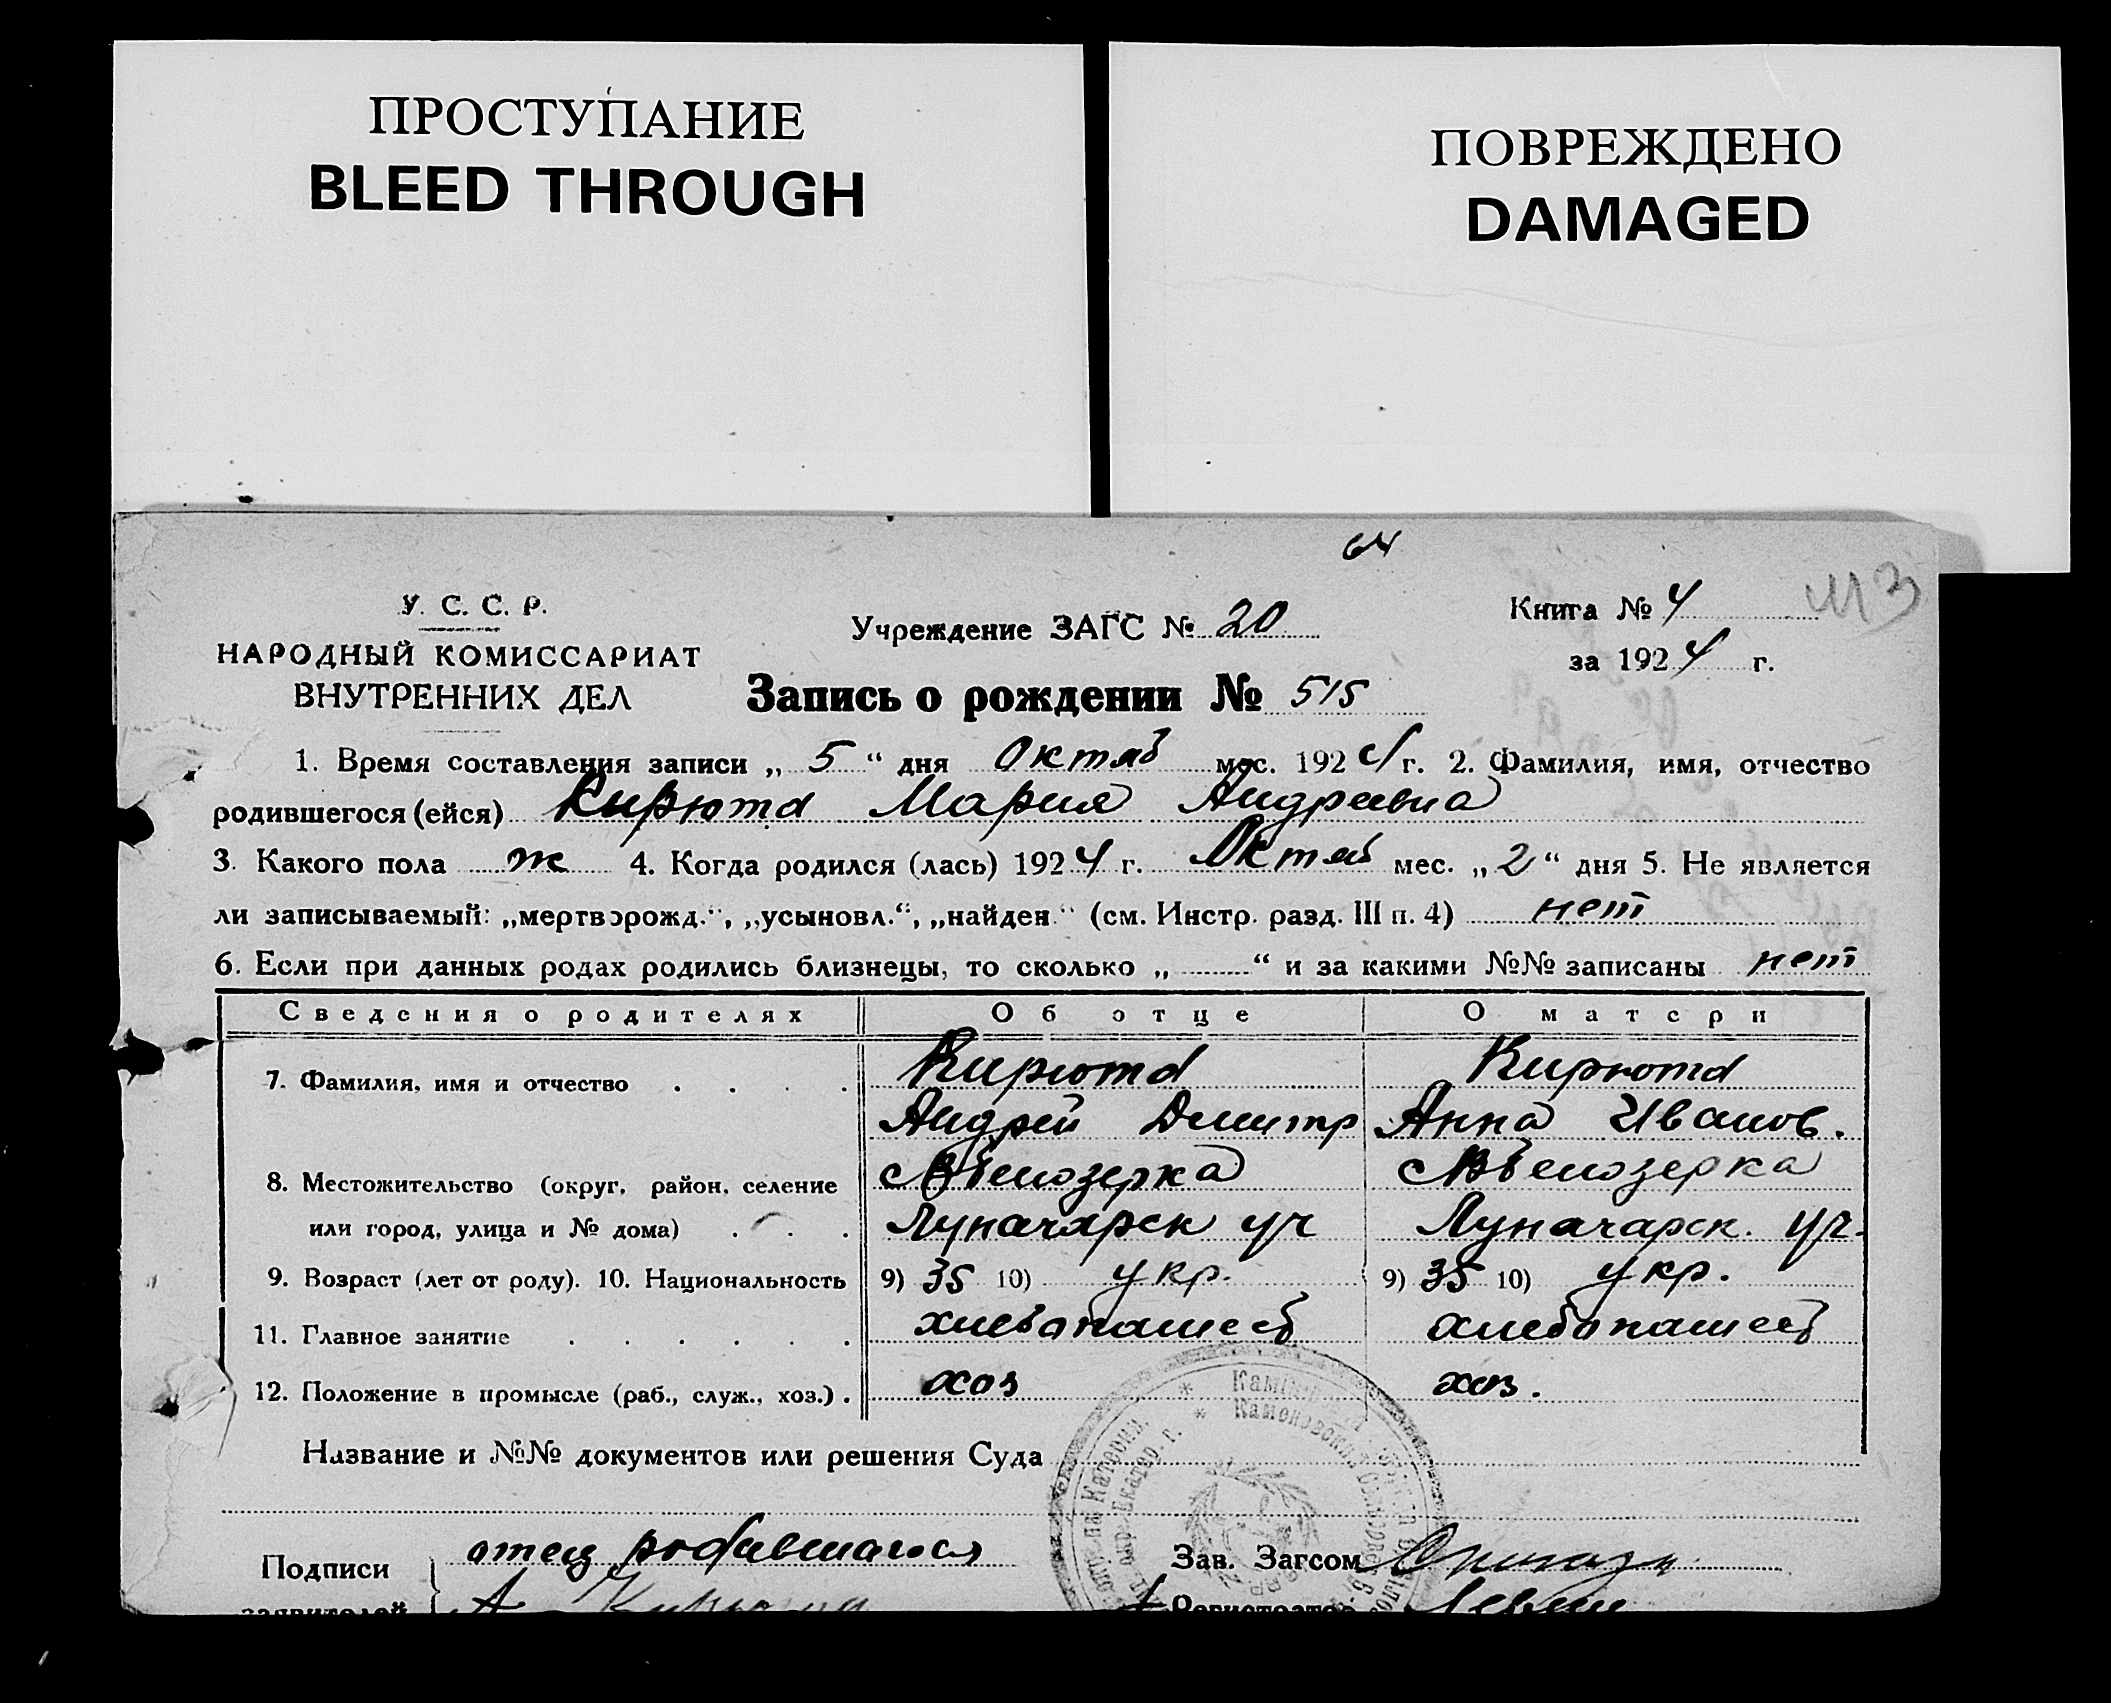 ПРОСТУПАНИЕ
BLEED THROUGH
ПОВРЕЖДЕНО
DAMAGED
64
113
У. С. С. Р.
НАРОДНЫЙ КОМИССАРИАТ
ВНУТРЕННИХ ДЕЛ
Учреждение ЗАГС № 20
Книга № 4
за 1924 г.
Запись о рождении № 515
1. Время составления записи „ 5 “ дня Октяб мес. 1924 г. 2. Фамилия, имя, отчество
родившегося (ейся) Кирюта Мария Андреевна
3. Какого пола ж 4. Когда родился (лась) 1924 г. Октяб мес. „ 2 “ дня 5. Не является
ли записываемый: „мертворожд.“, „усыновл.“, „найден.“ (см. Инстр. разд. III п. 4) нет
6. Если при данных родах родились близнецы, то сколько „ “ и за какими №№ записаны нет
Сведения о родителях Об отце О матери
7. Фамилия, имя и отчество Кирюта Кирюта
Андрей Димитр Анна Иванов.
8. Местожительство (округ, район, селение
или город, улица и № дома) Луначарск ул Луначарск. ул.
9. Возраст (лет от роду). 10. Национальность 9) 35 10) укр. 9) 35 10) укр.
11. Главное занятие хлебопашеб хлебопашеб
12. Положение в промысле (раб., служ., хоз.) хоз хоз.
Название и №№ документов или решения Суда
Подписи отец родившагося Зав. Загсом
заявителей А Кирюта Регистратор